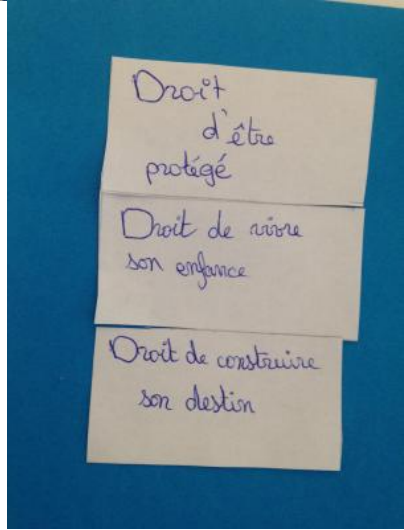 Droit
d'être
protégé
Droit de vivre
son enfance
Droit de construire
son destin